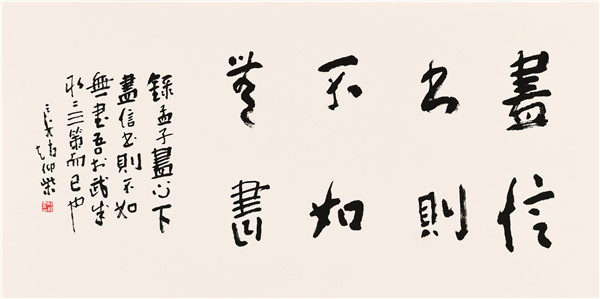 盡信
书則
不如
無書
錄孟子盡心下
盡信书則不如
無書吾於武成
取二三策而已也